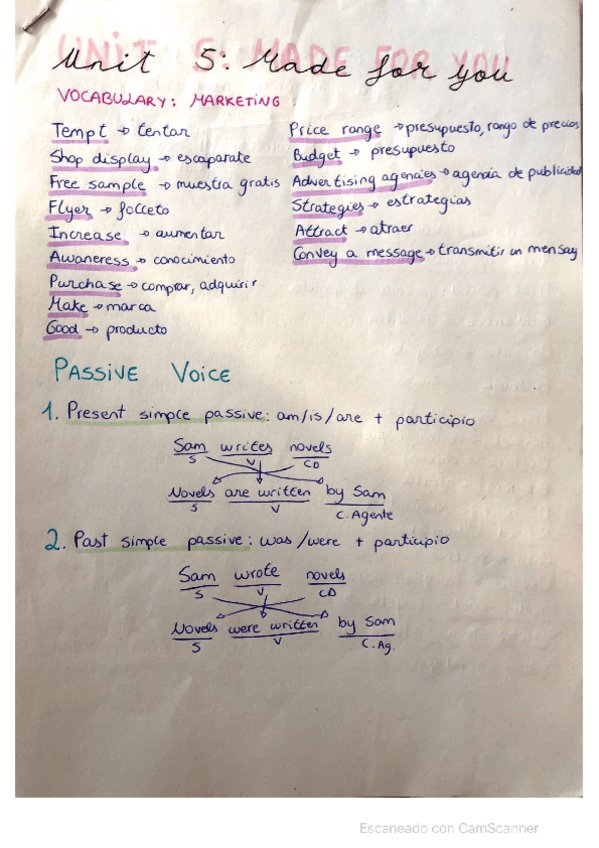 UNIT 5: MADE FOR YOU
Unit 5: Made for you
VOCABULARY: MARKETING
Tempt → tentar
Shop display → escaparate
Free sample → muestra gratis
Flyer → folleto
Increase → aumentar
Awaneress → conocimiento
Purchase → comprar, adquirir
Make → marca
Good → producto
Price range → presupuesto, rango de precios
Budget → presupuesto
Advertising agencies → agencia de publicidad
Strategies → estrategias
Attract → atraer
Convey a message → transmitir un mensaj
PASSIVE VOICE
1. Present simple passive: am/is/are + participio
Sam writes novels
S V CD
Novels are written by Sam
S V C. Agente
2. Past simple passive: was/were + participio
Sam wrote novels
S V CD
Novels were written by Sam
S V C. Ag.
Escaneado con CamScanner